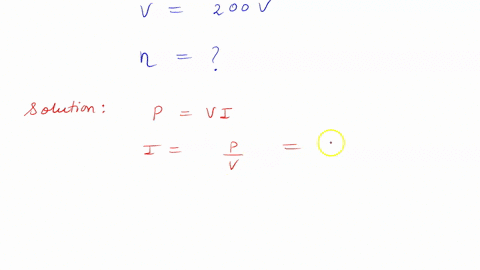 V = 200 V
n = ?
Solution: P = VI
I = P/V =